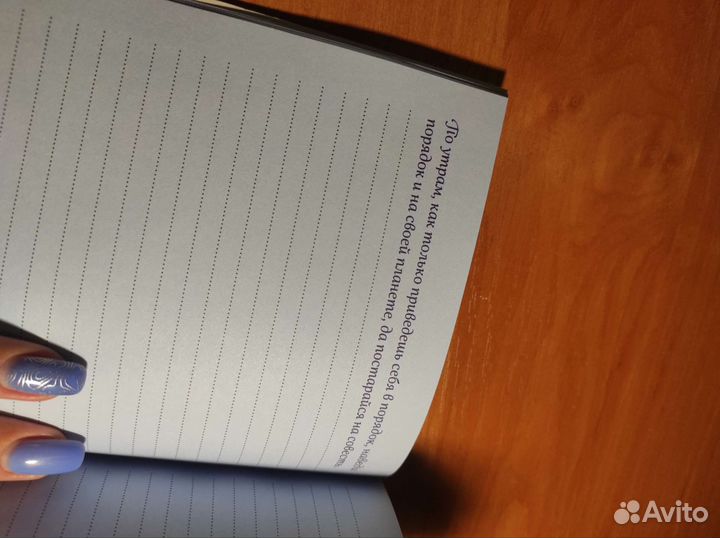 По утрам, как только приведешь себя в порядок, наведи
порядок и на своей планете, да постарайся на совесть
Avito